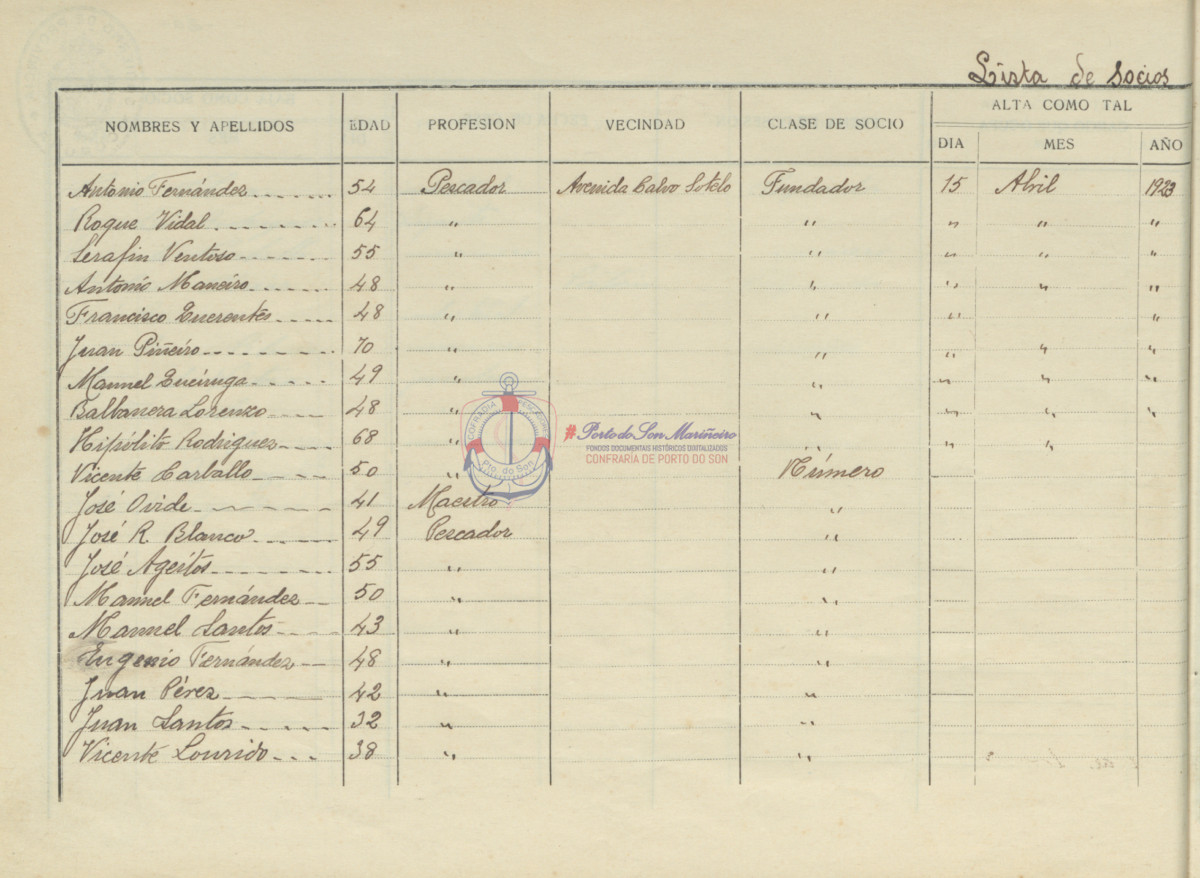 Lista de socios
NOMBRES Y APELLIDOS EDAD PROFESION VECINDAD CLASE DE SOCIO ALTA COMO TAL
DIA MES AÑO
Antonio Fernández 54 Pescador Avenida Calvo Sotelo Fundador 15 Abril 1923
Roque Vidal 64 " " " " "
Serafin Ventoso 55 " " " " "
Antonio Maneiro 48 " " " " "
Francisco 48 " " " "
Juan Piñeiro 70 " " " " "
Manuel Queiruga 49 " " " " "
Balbanera Lorenzo 48 " " " " "
Hipólito Rodriguez 68 " " " "
Vicente Carballo 50 " Número
José Ovide 41 Maestro "
José R. Blanco 49 Pescador "
José Ageitos 55 " "
Manuel Fernández 50 " "
Manuel Santos 43 " "
Eugenio Fernández 48 " "
Juan Pérez 42 " "
Juan Santos 32 " "
Vicente Lourido 38 " "
COFRADIA PESCADORES
Pto. do Son
#Porto do Son Mariñeiro
FONDOS DOCUMENTAIS HISTÓRICOS DIXITALIZADOS
CONFRARÍA DE PORTO DO SON